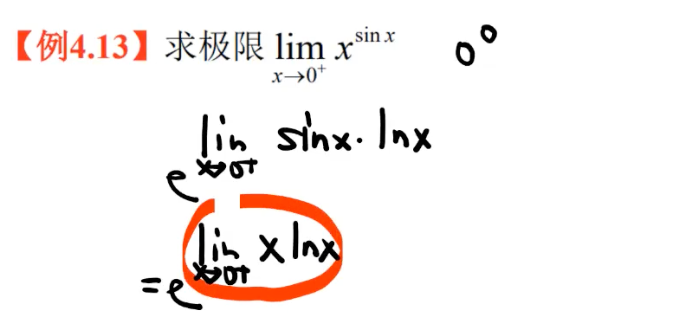 【例4.13】求极限 lim x→0⁺ x^{sin x} 0⁰
e^{lim x→0+ sinx·lnx}
=e^{lim x→0+ x lnx}